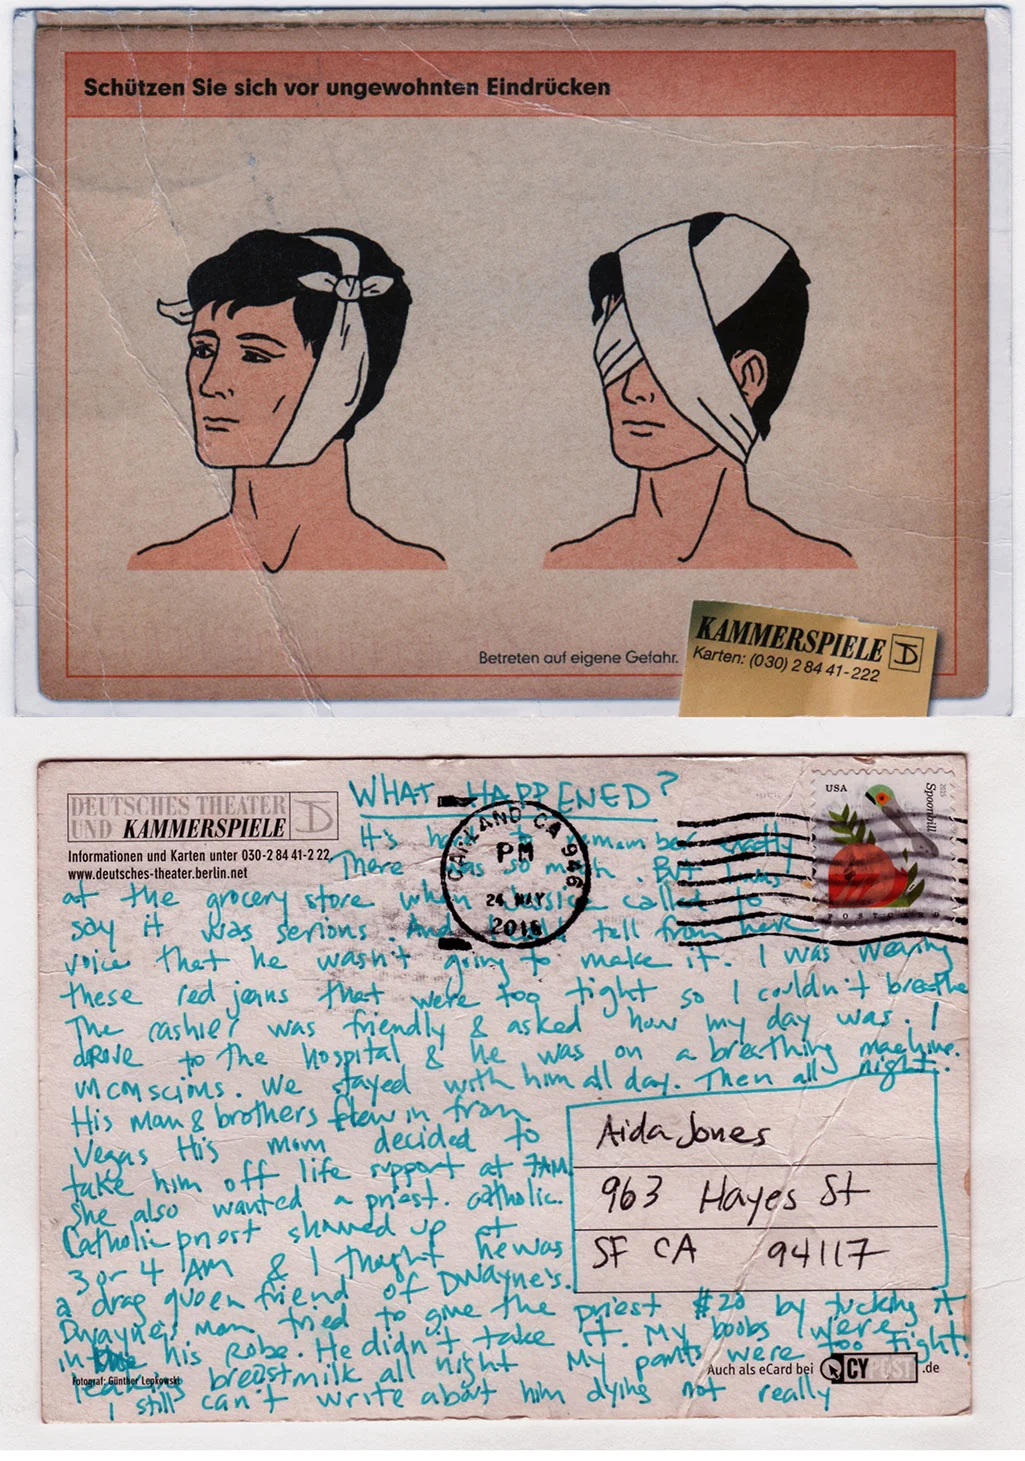 Schützen Sie sich vor ungewohnten Eindrücken
Betreten auf eigene Gefahr.
KAMMERSPIELE
Karten: (030) 2 84 41-222
DEUTSCHES THEATER
UND KAMMERSPIELE
Informationen und Karten unter 030-2 84 41-2 22,
www.deutsches-theater.berlin.net
USA
Spoonbill
2015
POSTCARD
OAKLAND CA 946
PM
24 MAY
2016
WHAT HAPPENED?
It's hard to remember exactly
There was so much. But I was
at the grocery store when called to
say it was serious. And tell from her
voice that he wasn't going to make it. I was wearing
these red jeans that were too tight so I couldn't breathe
The cashier was friendly & asked how my day was. I
drove to the hospital & he was on a breathing machine.
unconscious. We stayed with him all day. Then all night.
His mom & brothers flew in from
Vegas His mom decided to
take him off life support at 7AM
She also wanted a priest. Catholic.
Catholic priest showed up at
3 or 4 AM & I thought he was
a drag queen friend of Dwayne's.
Dwayne's mom tried to give the priest #20 by tucking it
in his robe. He didn't take it. My boobs were
leaking breastmilk all night My pants were too tight.
I still can't write about him dying not really
Aida Jones
963 Hayes St
SF CA 94117
Fotograf: Günther Lepkowski
Auch als eCard bei CYPEST .de